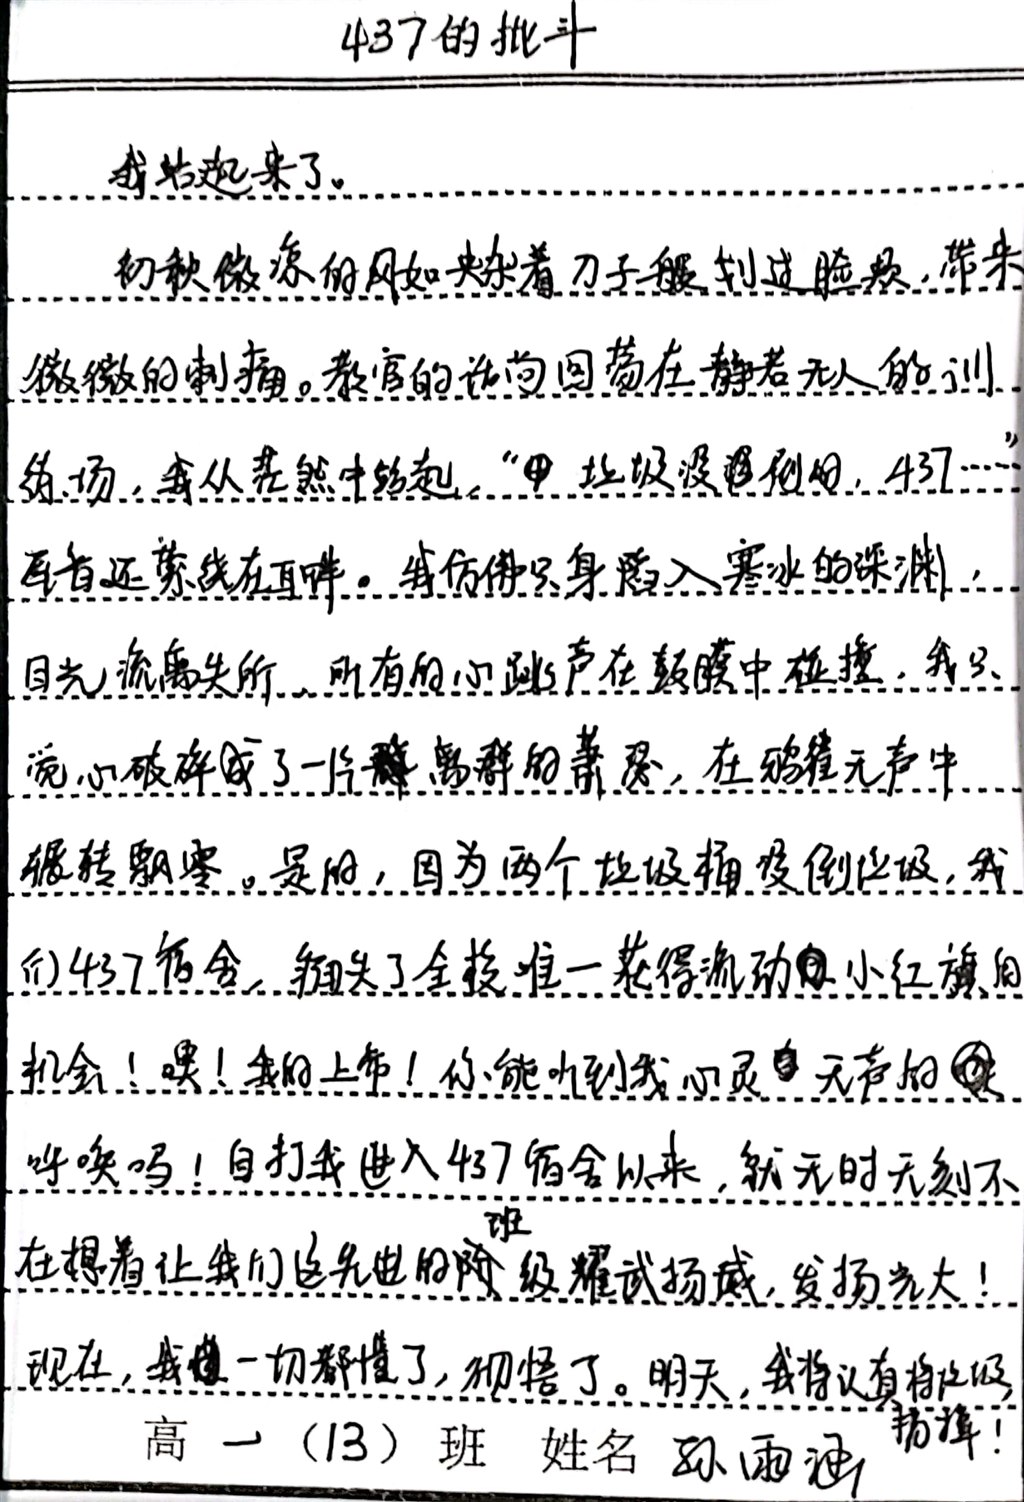 437的批斗
我站起来了。
初秋微凉的风如夹杂着刀子般划过脸颊，带来
微微的刺痛。教官的话尚回荡在静若无人的训
练场，我从茫然中站起，“垃圾没倒的，437……”
尾音还萦绕在耳畔。我仿佛只身踏入寒冰的深渊，
目光流离失所，所有的心跳声在鼓膜中碰撞，我只
觉心破碎成了一片离群的萧瑟，在鸦雀无声中
辗转飘零。是的，因为两个垃圾桶没倒垃圾，我
们437宿舍，痛失了全校唯一获得流动小红旗的
机会！噢！我的上帝！你能听到我心灵无声的
呼唤吗！自打我进入437宿舍以来，就无时无刻不
在想着让我们这先进的班级耀武扬威，发扬光大！
现在，我一切都懂了，彻悟了。明天，我将认真将垃圾
扔掉！
高一（13）班 姓名 孙雨涵